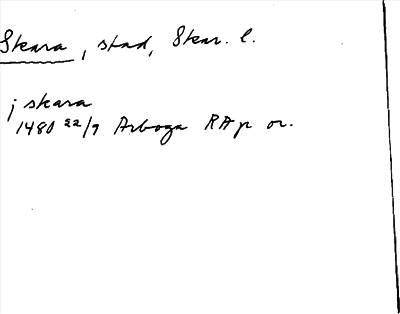 Skara, stad, Skar. l.
j skara
1480 22/9 Arboga RAp or.